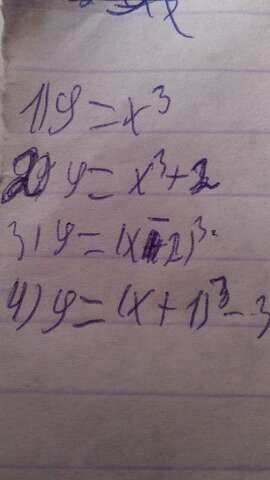 1) y = x³
2) y = x³ + 2
3) y = (x - 2)³
4) y = (x + 1)³ - 3